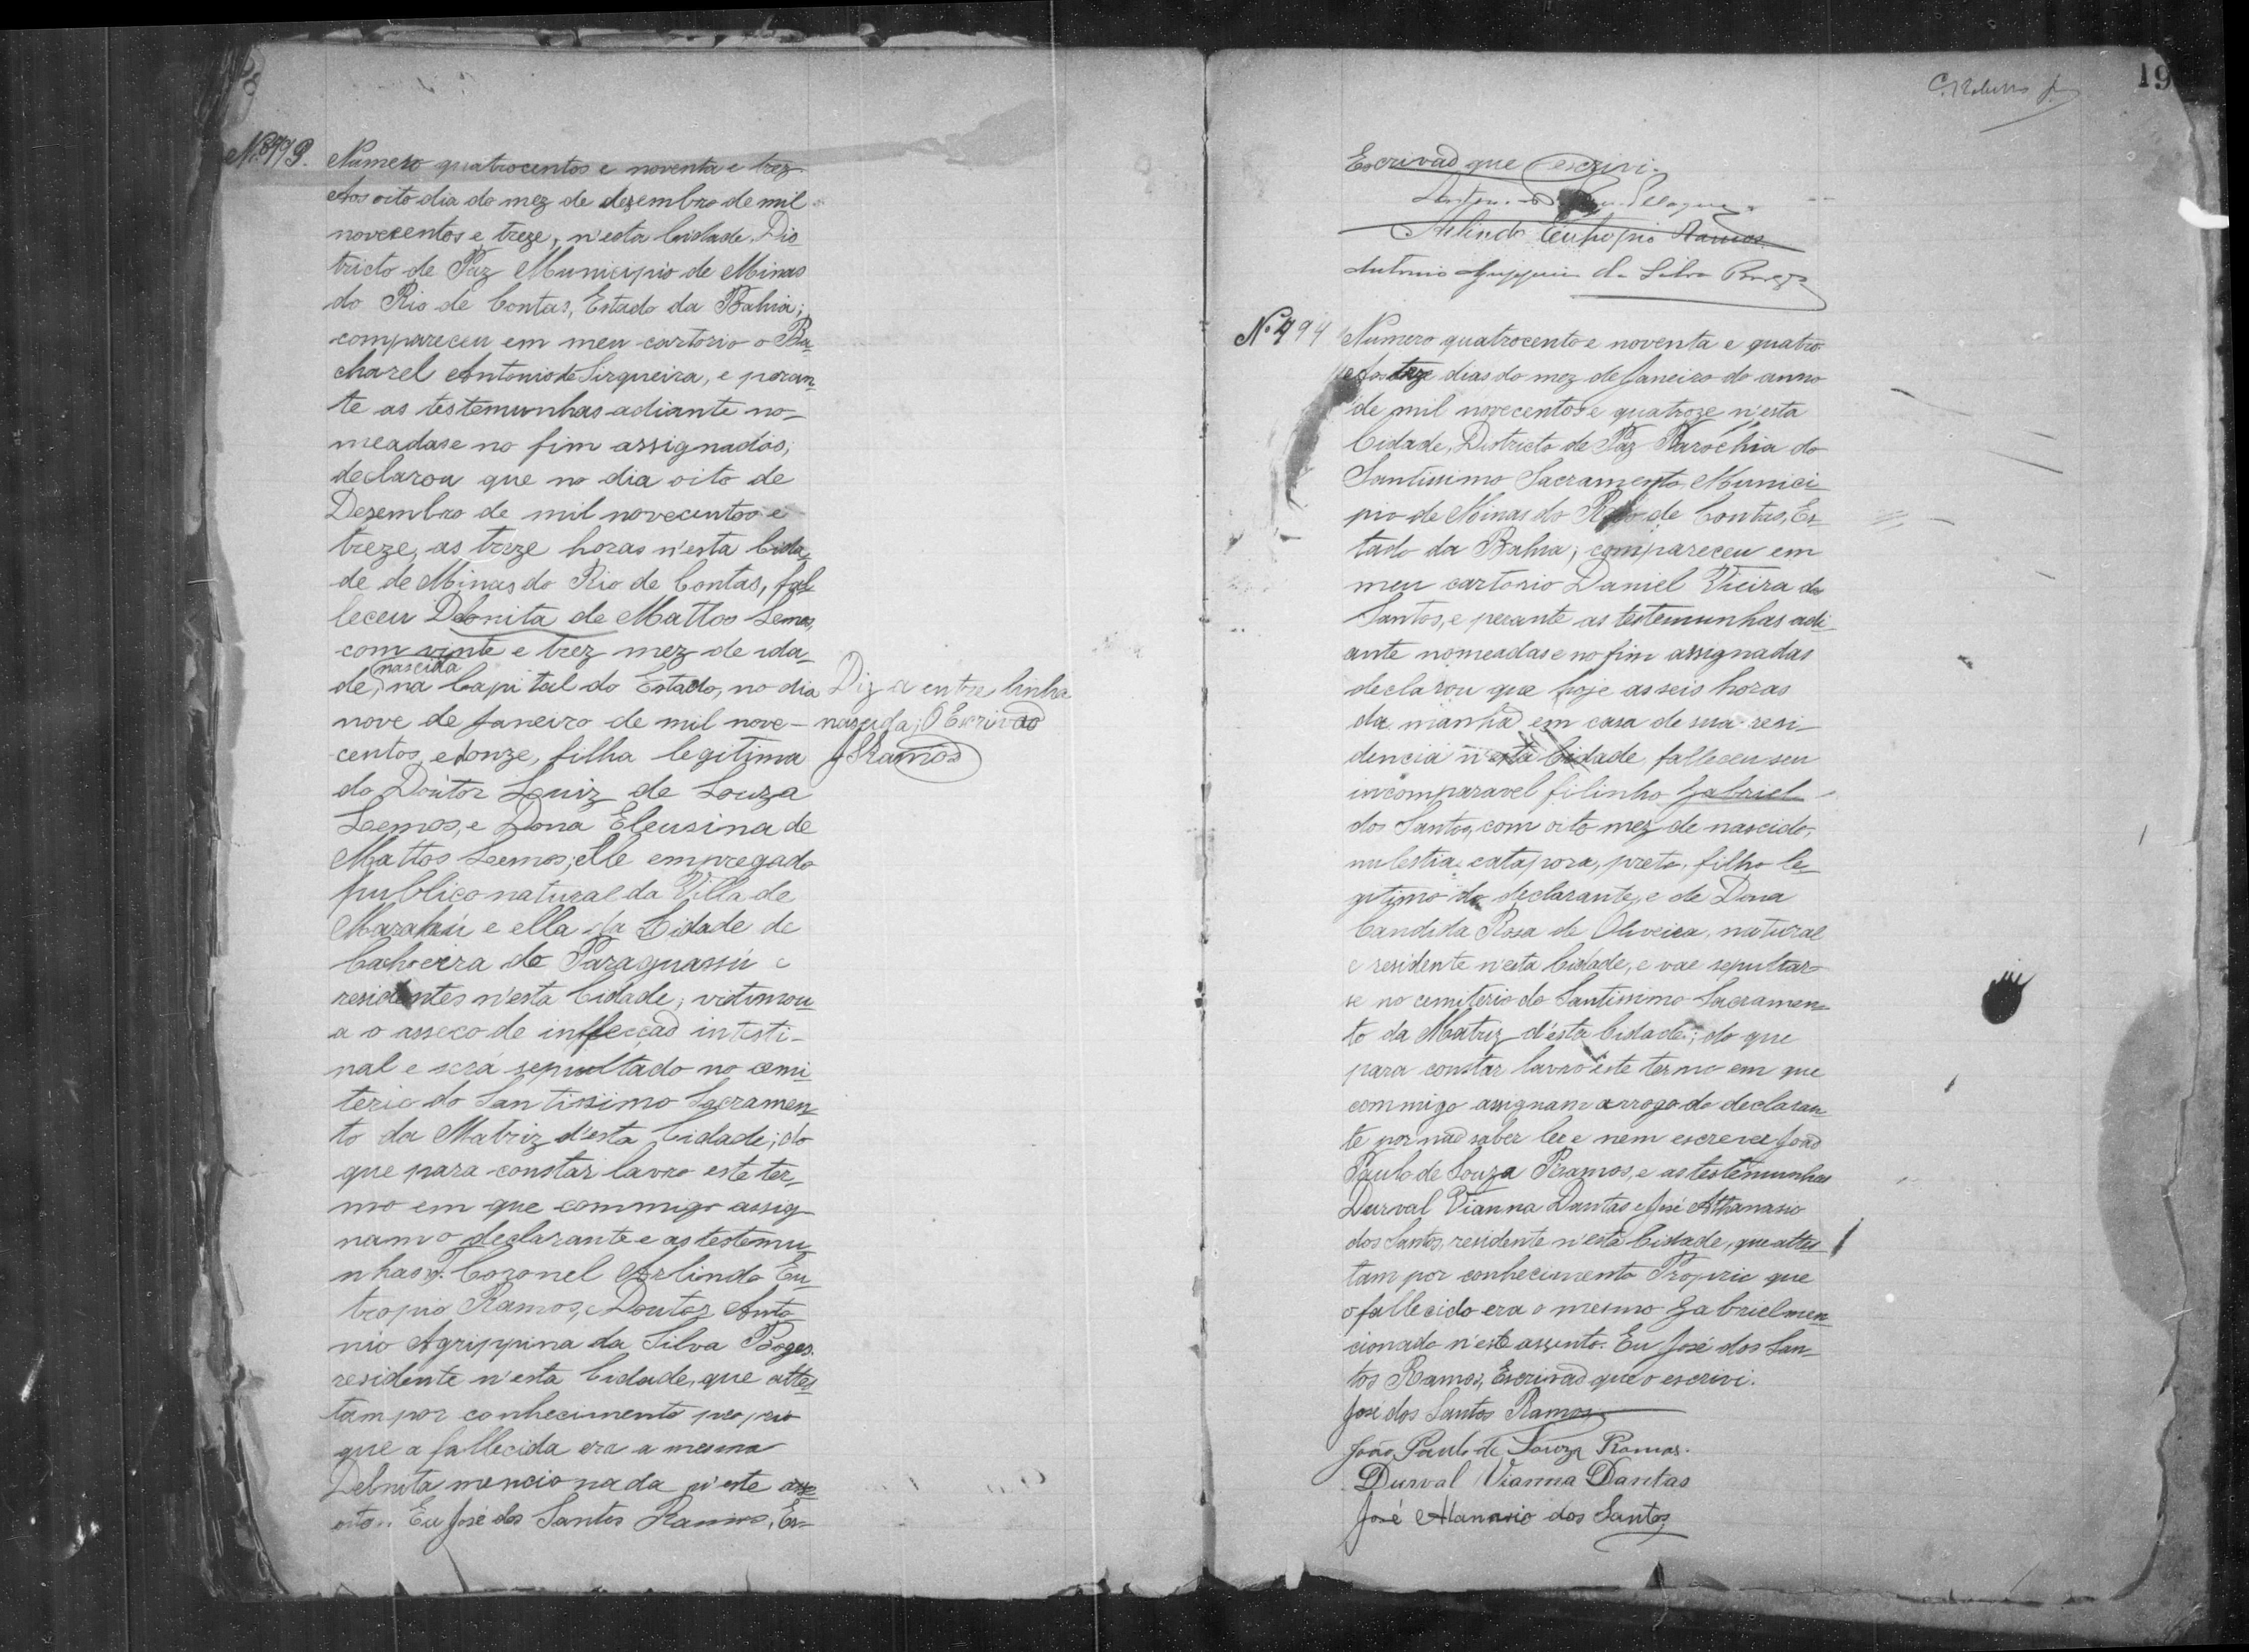 Numero quatrocentos e noventa e trez
Aos oito dia do mez de desembro de mil
novecentos e treze, n'esta Cidade, Dis
tricto de Paz Municipio de Minas
do Rio de Contas, Estado da Bahia;
compareceu em meu cartorio o Ba-
charel Antonio de Sirqueira, e peran-
te as testemunhas adiante no-
meadas e no fim assignados,
declarou que no dia oito de
Desembro de mil novecentos e
treze, as treze horas n'esta Cida-
de de Minas do Rio de Contas, fal-
leceu Delonita de Mattos Lemos,
com vinte e trez mez de ida-
nascida
de, na Capital do Estado, no dia
nove de Janeiro de mil nove-
centos e donze, filha legitima
do Doutor Luiz de Souza
Lemos, e Dona Eleusina de
Mattos Lemos; elle empregado
publico natural da Villa de
Marahú e ella da Cidade de
Cahoeira de Paraguassú e
residentes n'esta Cidade; victimou
a o asseço de inffecção intesti-
nal e será sepultado no cemi-
terio do Santissimo Sacramen-
to da Matriz d'esta Cidade; do
que para constar lavro este ter-
mo em que commigo assig-
nam o declarante e as testemu-
nhas Coronel Arlindo Eu-
tropio Ramos, Doutor Anto-
nio Agrippina da Silva Boges
residente n'esta Cidade, que attes-
tam por conhecimento proprio
que a fallecida era a mesma
Delnita mencionada n'este asse
nto. Eu José dos Santos Ramos, Es-
Diz a entre linha
nascida; O Escrivão
JSRamos
19
Escrivão que escrivi.
Arlindo Eutropio Ramos
Antonio Agrippin da Silva Borges
No 494
Numero quatrocento e noventa e quatro
Aos treze dias do mez de Janeiro do anno
de mil novecentos e quatroze n'esta
Cidade, Districto de Paz Parochia do
Santissimo Sacramento, Munici
pio de Minas do Rio de Contas, Es-
tado da Bahia; compareceu em
meu cartorio Daniel Vieira dos
Santos, e perante as testemunhas adi-
ante nomeadas e no fim assignadas
declarou que hoje as seis horas
da manhã em casa de sua resi-
dencia n'esta Cidade, falleceu seu
incomparavel filinho Gabriel
dos Santos, com oito mez de nascido,
mulestia catapora, preto, filho le-
gitimo do declarante, e de Dona
Candida Rosa de Oliveira, natural
e residente n'esta Cidade, e vae sepultar-
se no cemiterio do Santissimo Sacramen-
to da Matriz d'esta Cidade; do que
para constar lavro este termo em que
commigo assignam arrogo do declaran-
te por não saber ler e nem escrever João
Paulo de Souza Ramos, e as testemunhas
Durval Vianna Dantas e José Athanasio
dos Santos, residente n'esta Cidade, que attes-
tam por conhecimento Proprio que
o fallecido era o mesmo Gabriel men-
cionado n'este assento. Eu José dos San-
tos Ramos, Escrivão que o escrivi.
José dos Santos Ramos
João Paulo de Souza Ramos.
Durval Vianna Dantas
José Atanasio dos Santos